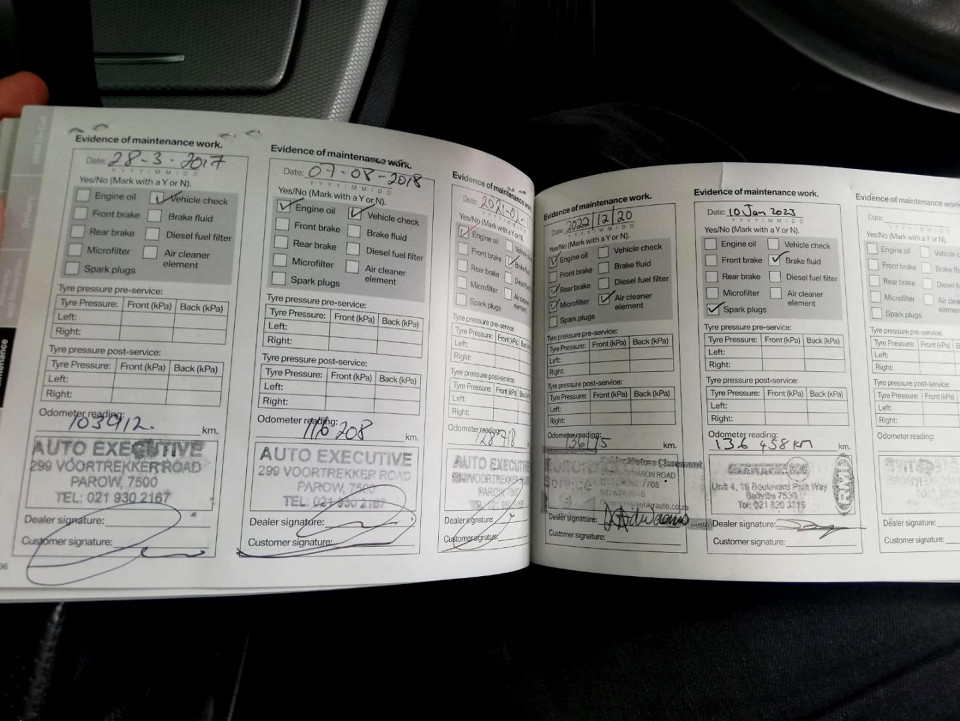 Evidence of maintenance work.
Date: 28-3-2017
Yes/No (Mark with a Y or N).
Engine oil Vehicle check
Front brake Brake fluid
Rear brake Diesel fuel filter
Microfilter Air cleaner
element
Spark plugs
Tyre pressure pre-service:
Tyre Pressure: Front (kPa) Back (kPa)
Left:
Right:
Tyre pressure post-service:
Tyre Pressure: Front (kPa) Back (kPa)
Left:
Right:
Odometer reading:
103912. km.
AUTO EXECUTIVE
299 VOORTREKKER ROAD
PAROW, 7500
TEL: 021 930 2167
Dealer signature:
Customer signature:
96
Evidence of maintenance work.
Date: 07-08-2018
Y Y Y Y M M D D
Yes/No (Mark with a Y or N).
Engine oil Vehicle check
Front brake Brake fluid
Rear brake Diesel fuel filter
Microfilter Air cleaner
element
Spark plugs
Tyre pressure pre-service:
Tyre Pressure: Front (kPa) Back (kPa)
Left:
Right:
Tyre pressure post-service:
Tyre Pressure: Front (kPa) Back (kPa)
Left:
Right:
Odometer reading:
116 208 km.
AUTO EXECUTIVE
299 VOORTREKKER ROAD
PAROW, 7500
TEL: 021 930 2167
Dealer signature:
Customer signature:
Evidence of maintenance
Date: 2021
Yes/No (Mark with a Y or N).
Engine oil
Front brake Brake
Rear brake
Microfilter
Spark plugs
Tyre pressure pre-service:
Tyre Pressure: Front (kPa)
Left:
Right:
Tyre pressure post-service:
Tyre Pressure: Front (kPa)
Left:
Right:
Odometer reading:
AUTO EXECUTIVE
VOORTREKKER
PAROW
Dealer signature:
Customer signature:
Evidence of maintenance work.
Date: 2022/12/20
Yes/No (Mark with a Y or N).
Engine oil Vehicle check
Front brake Brake fluid
Rear brake Diesel fuel filter
Microfilter Air cleaner
element
Spark plugs
Tyre pressure pre-service:
Tyre Pressure: Front (kPa) Back (kPa)
Left:
Right:
Tyre pressure post-service:
Tyre Pressure: Front (kPa) Back (kPa)
Left:
Right:
Odometer reading:
km.
7708
Dealer signature:
Customer signature:
Evidence of maintenance work.
Date: 10 Jan 2023
Y Y Y Y M M D D
Yes/No (Mark with a Y or N).
Engine oil Vehicle check
Front brake Brake fluid
Rear brake Diesel fuel filter
Microfilter Air cleaner
element
Spark plugs
Tyre pressure pre-service:
Tyre Pressure: Front (kPa) Back (kPa)
Left:
Right:
Tyre pressure post-service:
Tyre Pressure: Front (kPa) Back (kPa)
Left:
Right:
Odometer reading:
136 458 KM km.
Unit 4, 18 Boulevard Park Way
Bellville 7530
Tel: 021 820
RMI
Dealer signature:
Customer signature:
Evidence of maintenance
Date:
Yes/No (Mark with a Y or N).
Engine oil Vehicle
Front brake Brake
Rear brake Diesel
Microfilter Air
element
Spark plugs
Tyre pressure pre-service:
Tyre Pressure: Front (kPa)
Left:
Right:
Tyre pressure post-service:
Tyre Pressure: Front (kPa)
Left:
Right:
Odometer reading:
Dealer signature:
Customer signature: